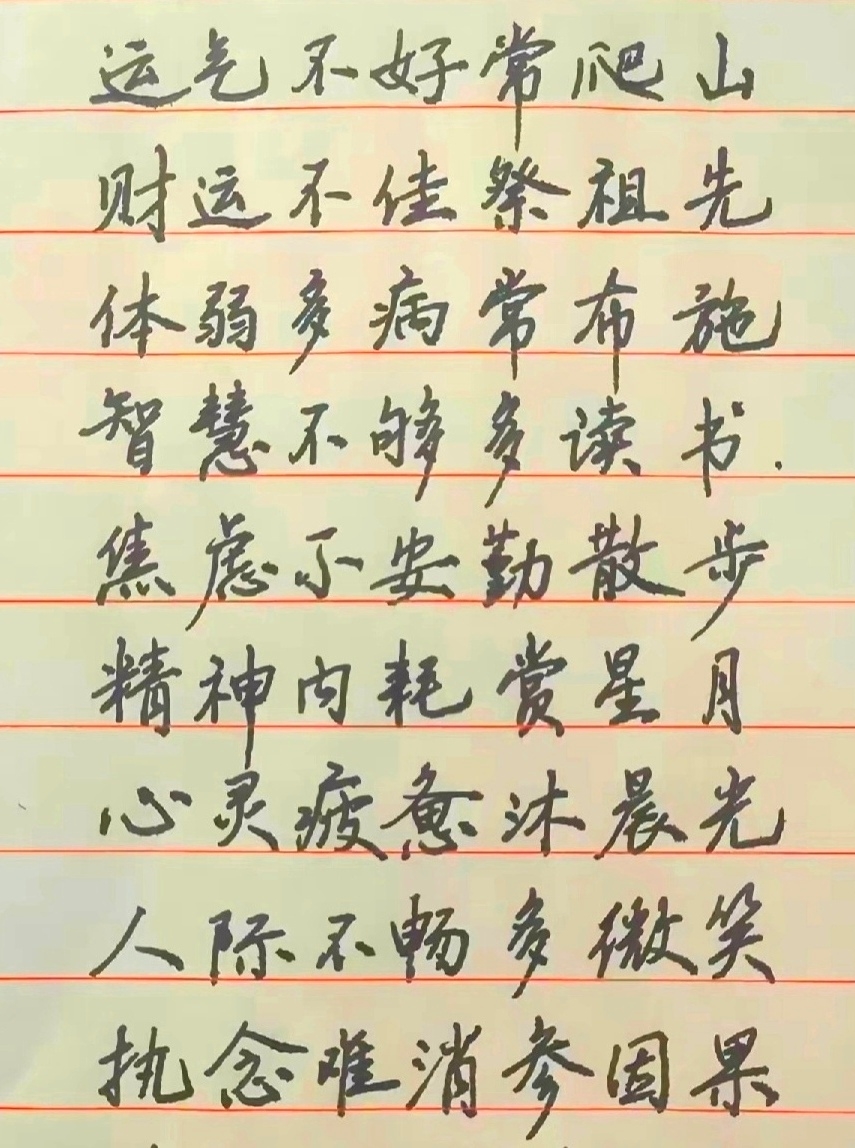 运气不好常爬山
财运不佳祭祖先
体弱多病常布施
智慧不够多读书.
焦虑不安勤散步
精神内耗赏星月
心灵疲惫沐晨光
人际不畅多微笑
执念难消参因果